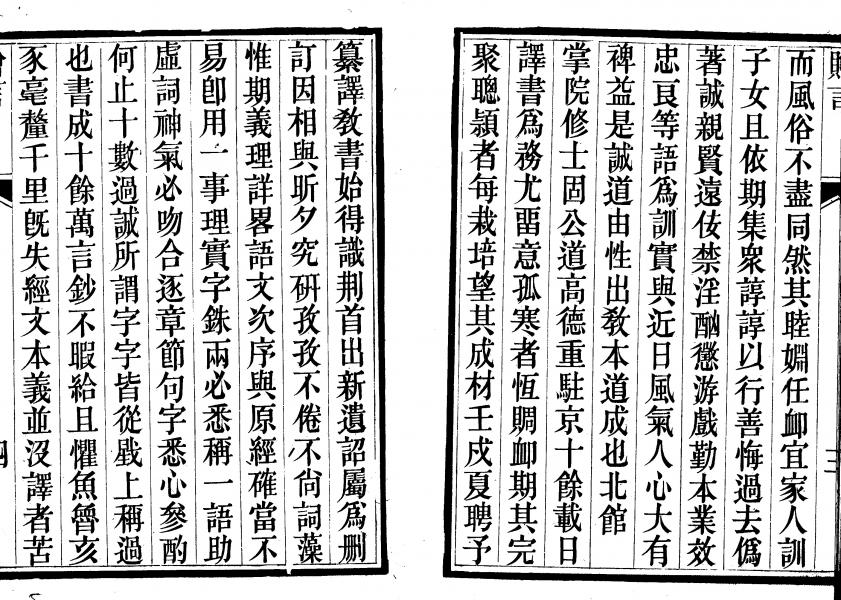 而風俗不盡同然其睦婣任卹宜家人訓
子女且依期集衆諄諄以行善悔過去僞
著誠親賢遠佞禁淫酗懲游戲勤本業效
忠良等語爲訓實與近日風氣人心大有
裨益是誠道由性出敎本道成也北館
掌院修士固公道高德重駐京十餘載日
譯書爲務尤畱意孤寒者恆賙卹期其完
聚聰頴者每栽培望其成材壬戍夏聘予
三
纂譯敎書始得識荆首出新遺詔屬爲刪
訂因相與昕夕究研孜孜不倦不尙詞藻
惟期義理詳畧語文次序與原經確當不
易卽用一事理實字銖兩必悉稱一語助
虛詞神氣必吻合逐章節句字悉心參酌
何止十數過誠所謂字字皆從戥上稱過
也書成十餘萬言鈔不暇給且懼魚魯亥
豕毫釐千里旣失經文本義並沒譯者苦